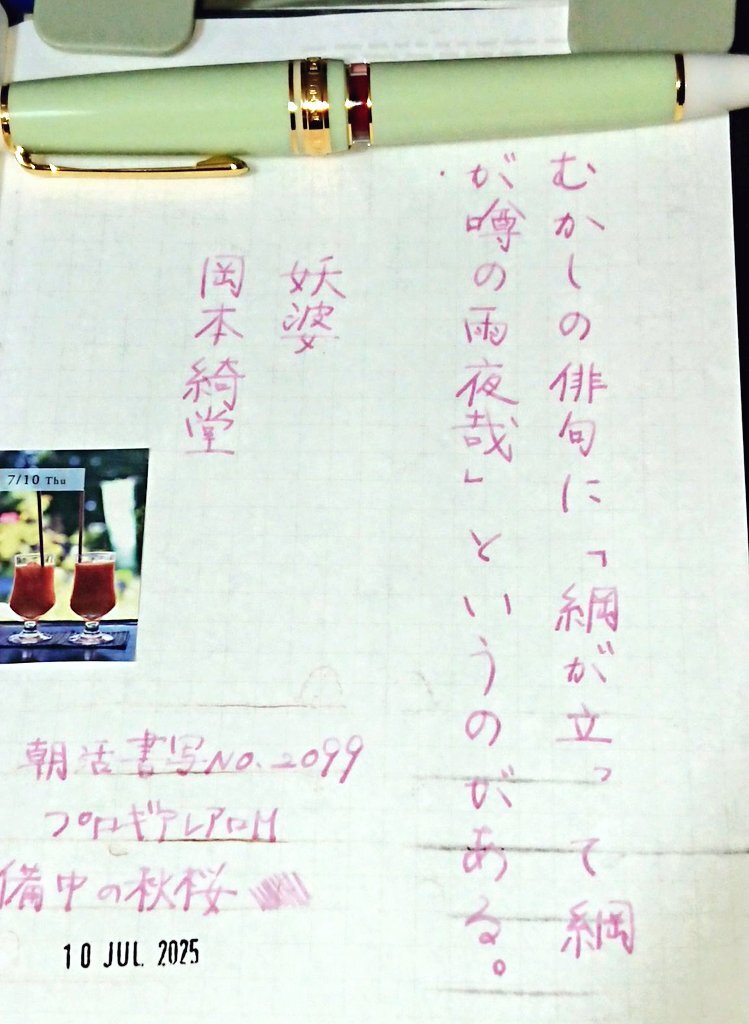 むかしの俳句に「綱が立って綱
が噂の雨夜哉」というのがある。
妖婆
岡本綺堂
7/10 Thu
朝活書写NO.2099
プロギアレアロM
備中の秋桜
10 JUL 2025